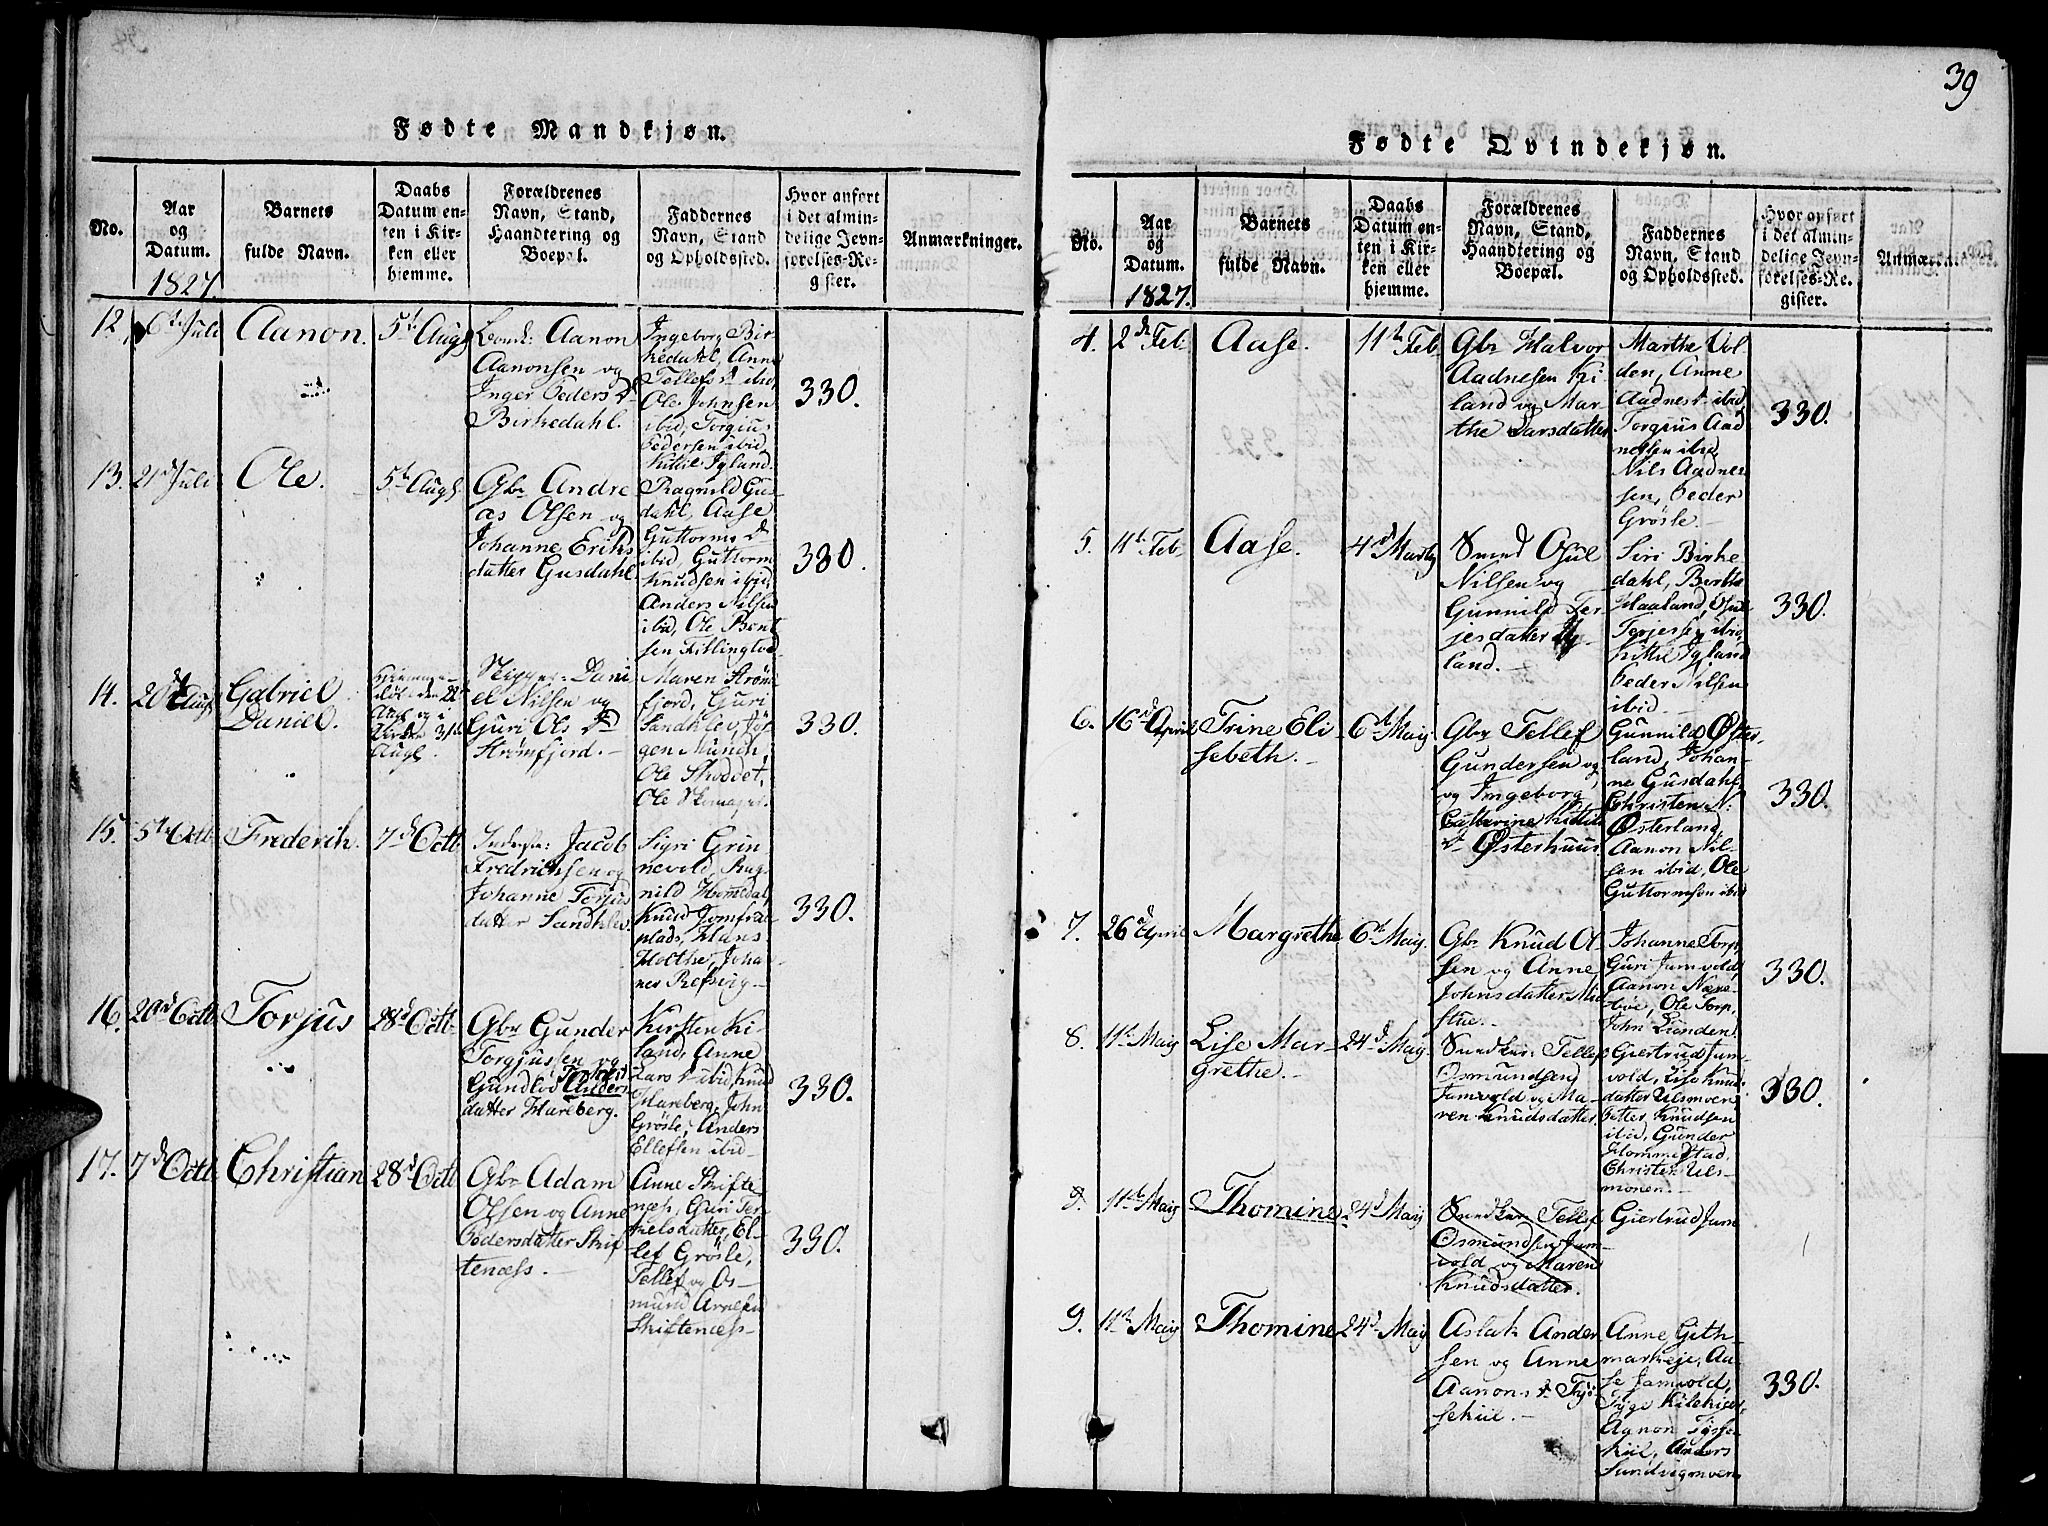 39
Fødte Mandkjøn.
No.
Aar
og
Datum.
1827.
Barnets
fulde Navn.
Daabs
Datum en-
ten i Kir-
ken eller
hjemme.
Forældrenes
Navn, Stand,
Haandtering og
Boepæl.
Faddernes
Navn, Stand
og Opholdssted.
Hvor anført
i det almin-
delige Jevn-
førelses-Re-
gister.
Anmærkninger.
12
6te Juli
Aanon.
5te Augs
Aanon
Aanonsen og
Inger Peders D
Birkedahl.
Ingeborg Bir-
kedahl, Anne
Tellefs D ibid,
Ole Johnsen
ibid, Torgius
Pedersen ibid
Kittil Igland.
330.
13.
21d Juli
Ole.
5te Augs.
Gbr Andre
as Olsen og
Johanne Eriks
datter Gusdahl
Ragnild Gus-
dahl, Aase
Guttorms D
ibid, Guttorm
Knudsen ibid,
Anders Nilsen
ibid, Ole Bent
sen
330.
14.
20de Augs
Gabriel
Daniel.
Augs og i
Kirken 31te
Augs.
Skipper Dani
el Nilsen og
Guri Ols D
Strømfjord.
Maren Strøm
fjord, Guri
Sandklev, Jør
gen Münch,
Ole Skoddet,
Ole
330.
15.
5te Octb.
Frederik.
7de Octb
Jacob
Fredriksen og
Johanne Terjus
datter Sandklev.
Sigri Grin
nevold, Rag
nild Homedal,
Knud Jomfrue
plads, Hans
Holthe, Joha
nes Refsvig
330.
16.
20de Octb.
Torjus
28de Octb.
Gbr Gunder
Torgjussen og
Gunild Anders
datter Hareberg.
Kirsten Ki-
land, Anne
Lars D ibid, Knud
Hareberg, John
Grösle, Anders
Ellefsen ibid
330.
17.
7de Octb.
Christian
28d Octb
Gbr Adam
Olsen og Anne
Pedersdatter Skif
tenæss.
Anne Skifte
næss, Guri Ter
kielsdatter, El-
lef Grösle,
Tellef og Os-
mund Arnesen
Skiftenæss
330.
Fødte Qvindekjøn.
No.
Aar
og
Datum.
1827.
Barnets
fulde Navn.
Daabs
Datum en-
ten i Kir-
ken eller
hjemme.
Forældrenes
Navn, Stand,
Haandtering og
Boepæl.
Faddernes
Navn, Stand
og Opholdssted.
Hvor anført
i det almin-
delige Jevn-
førelses-Re-
gister.
Anmærkn
4.
2de Feb.
Aase.
11te Feb
Gbr Halvor
Aadnesen Ki
land og Mar-
the Larsdatter
Marthe Vol
den, Anne
Aadnes D ibid
Torgius Aad
nesen ibid,
Nils Aadne
sen, Peder
Grösle.
330.
5.
11te Feb.
Aase.
4de Marty
Smed Osul
Nilsen og
Gunnild Ter-
jesdatter Ig
land.
Siri Birke
dahl, Berthe
Haaland, Osul
Terjesen ibid,
Kittil Igland
Peder Nilsen
ibid
330.
6.
16d April
Trine Eli
sebeth.
6te Maij
Gbr Tellef
Gundersen og
og Ingeborg
Cathrine Kittils
D Østerhuus.
Gunnild Øster-
land, Johan-
ne Gusdahl,
Christen N.
Østerland,
Aanon Nil-
sen ibid, Ole
Guttormsen ibid
330.
7.
26d April
Margrethe
6te Maij.
Gbr Knud Ol-
sen og Anne
Johnsdatter Mid
stue.
Johanne Torp,
Guri Jamvold,
Aanon Næse-
böe, Ole Torp,
John Lunden.
330.
8.
11te Maij
Lise Mar-
grethe.
24d Maij.
Tellef
Osmundsen
Jamvold og Ma
ren Knudsdatter.
Giertrud Jam-
vold, Lise Knud
datter Ulsmoen
Peter Knudsen
ibid, Gunder
Hommestad,
Christen Uls-
monen.
330.
9.
11te Maij
Thomine
24d Maij
Tellef
Osmundsen Jam-
vold og Maren
Knudsdatter.
Giertrud Jam
9.
11te Maij
Thomine
24d Maij
Aslak Ander
sen og Anne
Aanons D Työ
sekiil.
Anne Gith-
markeje, Aa-
se Jamvold,
Tyge
Aanon Tyøse
kiil, Anders
Sandvigmoen
330.